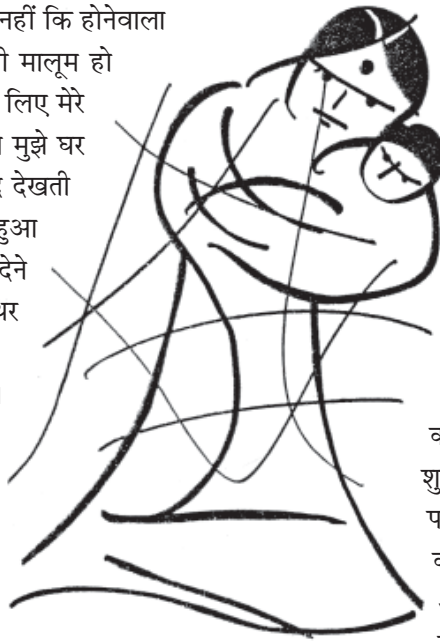 नहीं कि होनेवाला
ी मालूम हो
लिए मेरे
मुझे घर
देखती
हुआ
देने
शु
प